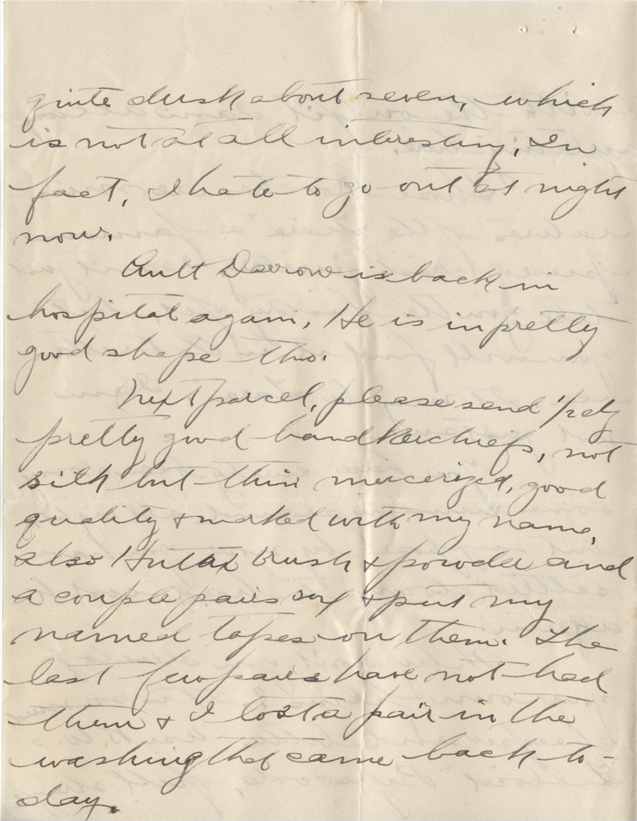 quite dusk about seven, which
is not at all interesting. In
fact, I hate to go out at night
now.
Ault Darrow is back in
hospital again. He is in pretty
good shape tho.
Next parcel, please send 1/2 dz
pretty good handkerchiefs, not
silk but thin mercerized, good
quality & marked with my name,
also brush & powder and
a couple pairs sox & put my
named tapes on them. The
last few pairs have not had
them & I lost a pair in the
washing that came back to-
day.